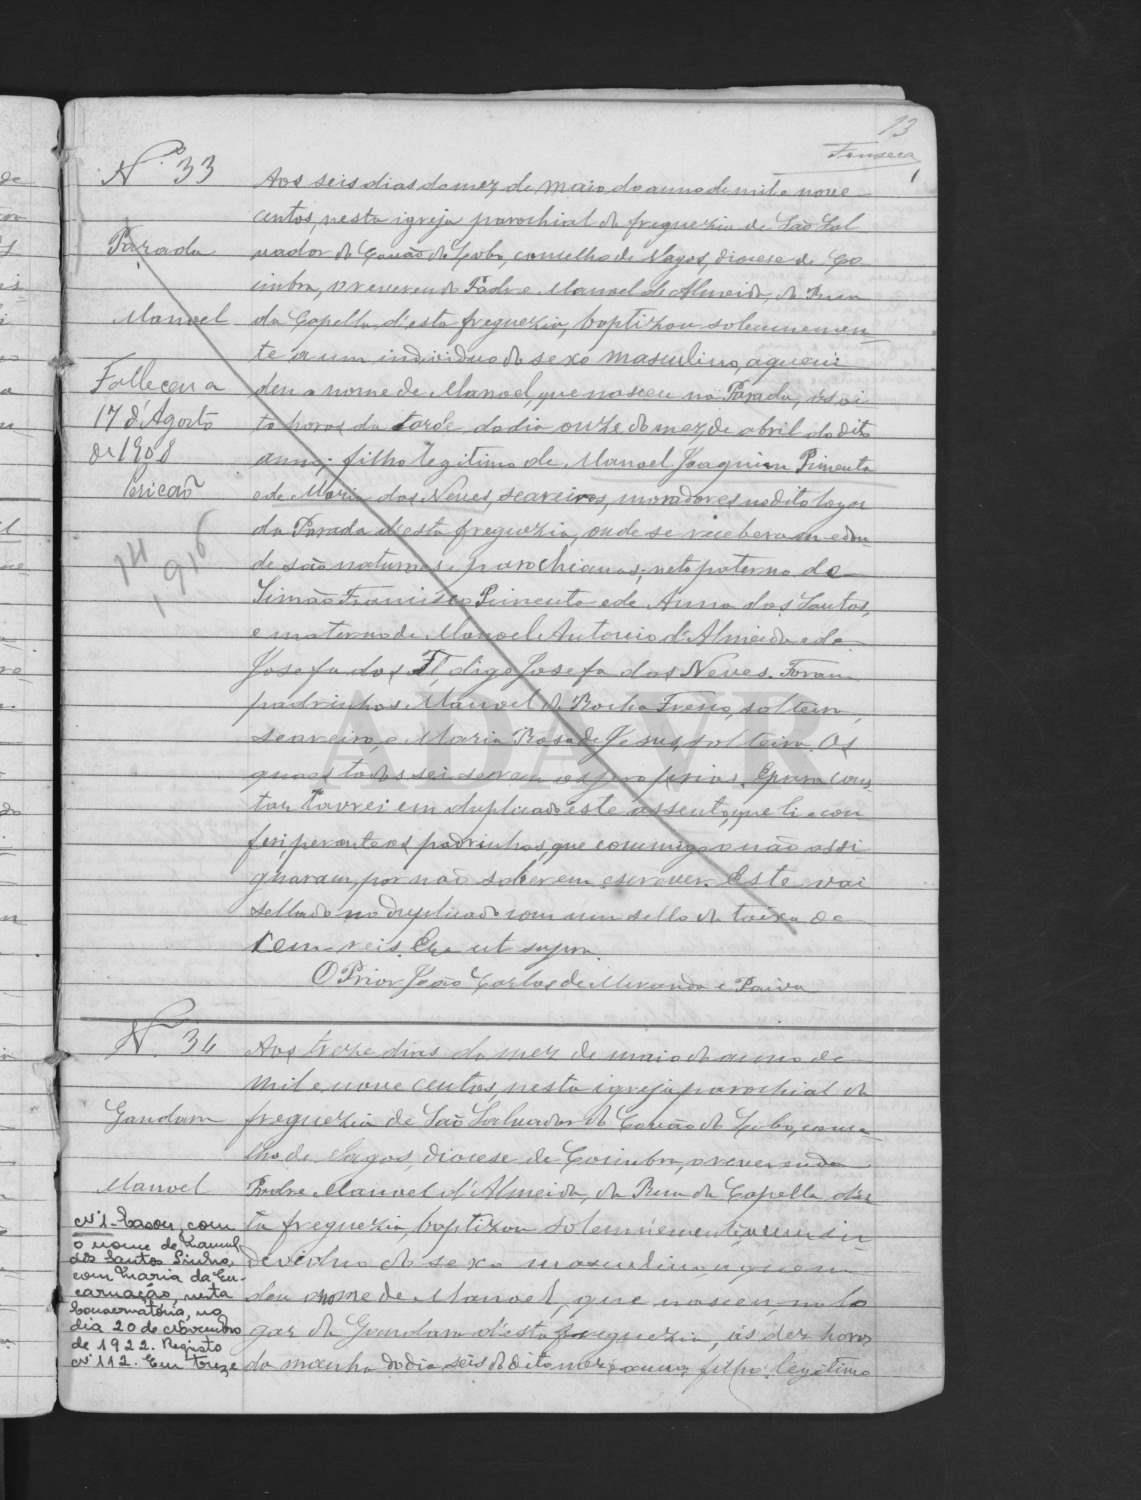 13
Fonseca
N.º 33
Parada
Manoel
Falleceu a
17 d'Agosto
de 1908
14
1916
Aos seis dias do mez de maio do anno de mil e nove
centos, nesta igreja parochial da freguezia de São Sal
vador de Covão do Lobo, concelho de Vagos, diocese de Co
imbra, o reverendo Padre Manoel de Almeida, da Rua
da Capella, d'esta freguezia, baptizou solemnemen
te a um individuo do sexo masculino, a quem
deu o nome de Manoel, que nasceu na Parada, ás oi
to horas da tarde do dia onze do mez de abril do dito
anno; filho legitimo de Manoel Joaquim Pimenta
e de Maria das Neves, seareiros, moradores no dito logar
da Parada d'esta freguezia, onde se receberam e don
de são naturaes e parochianos; neto paterno de
Simão Francisco Pimenta e de Anna dos Santos,
e materno de Manoel Antonio d'Almeida e de
Josefa dos F, digo Josefa das Neves. Foram
padrinhos Manoel da Rocha Freire, solteiro,
seareiro, e Maria Rosa de Jesus, solteira. Os
quaes todos sei serem os proprios. E para cons
tar lavrei em duplicado este assento, que li e con
feri, perante os padrinhos, que commigo o não assi
gnaram, por não saberem escrever. Este vai
sellado no duplicado com um sello da taixa de
cem reis. Era ut supra.
O Prior João Carlos de Miranda e Paiva
N.º 34
Gandara
Manoel
Nº1-Casou, com
o nome de Manuel
dos Santos
com Maria da En-
carnação, nesta
Conservatória, no
dia 20 de Novembro
de 1922. Registo
nº 112. Em treze
Aos treze dias do mez de maio do anno de
mil e nove centos, nesta igreja parochial da
freguezia de São Salvador de Covão do Lobo, conce
lho de Vagos, diocese de Coimbra, o reverendo
Padre Manoel d'Almeida, da Rua da Capella des
ta freguezia, baptizou solemnemente a um in
dividuo do sexo masculino a quem
deu o nome de Manoel, que nasceu no lo
gar da Gandara d'esta freguezia, ás dez horas
da manhã do dia seis do dito mez e anno, filho legitimo
ADAVR